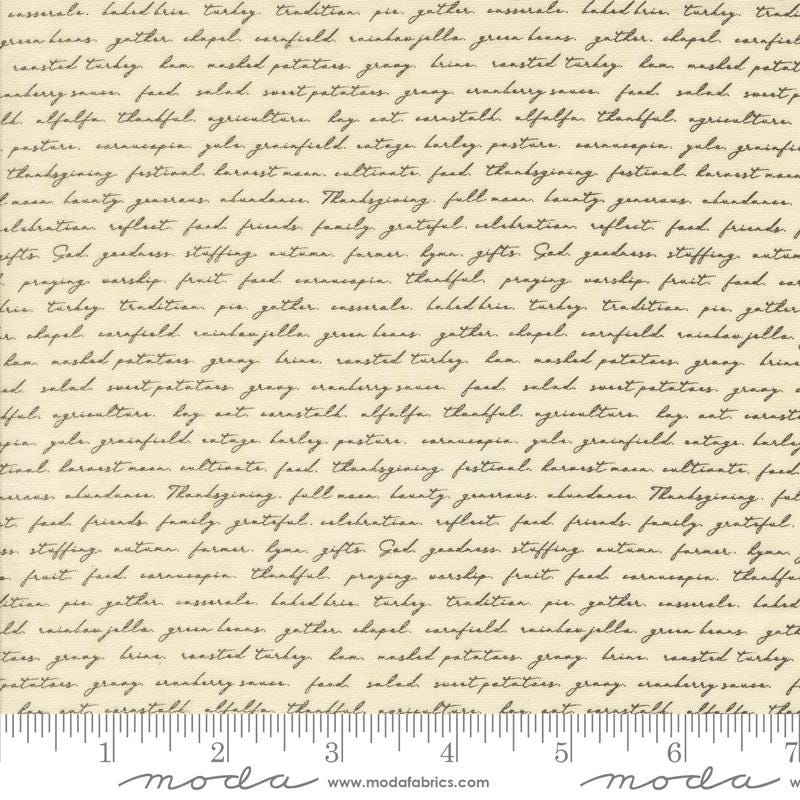 casserole. baked brie. turkey. tradition. pie. gather. casserole. baked brie. turkey.
green beans. gather. chapel. cornfield. rainbow jello. green beans. gather. chapel.
roasted turkey. ham. mashed potatoes. gravy. brine. roasted turkey. ham. mashed
cranberry sauce. food. salad. sweet potatoes. gravy. cranberry sauce. food. salad. sweet
alfalfa. thankful. agriculture. hay. oat. cornstalk. alfalfa. thankful. agriculture.
pasture. cornucopia. yule. grainfield. cottage. barley. pasture. cornucopia. yule.
thanksgiving. festival. harvest moon. cultivate. food. thanksgiving. festival. harvest moon
moon. bounty. generous. abundance. Thanksgiving. full moon. bounty. generous. abundance.
celebration. reflect. food. friends. family. grateful. celebration. reflect. food. friends.
gifts. God. goodness. stuffing. autumn. farmer. hymn. gifts. God. goodness. stuffing.
praying. worship. fruit. food. cornucopia. thankful. praying. worship. fruit. food.
brie. turkey. tradition. pie. gather. casserole. baked brie. turkey. tradition. pie. gather
chapel. cornfield. rainbow jello. green beans. gather. chapel. cornfield. rainbow jello.
ham. mashed potatoes. gravy. brine. roasted turkey. ham. mashed potatoes. gravy. brine
salad. sweet potatoes. gravy. cranberry sauce. food. salad. sweet potatoes. gravy.
agriculture. hay. oat. cornstalk. alfalfa. thankful. agriculture. hay. oat.
yule. grainfield. cottage. barley. pasture. cornucopia. yule. grainfield. cottage.
harvest moon. cultivate. food. thanksgiving. festival. harvest moon. cultivate. food.
abundance. Thanksgiving. full moon. bounty. generous. abundance. Thanksgiving.
food. friends. family. grateful. celebration. reflect. food. friends. family. grateful.
stuffing. autumn. farmer. hymn. gifts. God. goodness. stuffing. autumn. farmer. hymn.
fruit. food. cornucopia. thankful. praying. worship. fruit. food. cornucopia. thankful
pie. gather. casserole. baked brie. turkey. tradition. pie. gather. casserole. baked
rainbow jello. green beans. gather. chapel. cornfield. rainbow jello. green beans.
gravy. brine. roasted turkey. ham. mashed potatoes. gravy. brine. roasted turkey.
potatoes. gravy. cranberry sauce. food. salad. sweet potatoes. gravy. cranberry sauce.
hay. oat. cornstalk. alfalfa. thankful. agriculture. hay. oat. cornstalk. alfalfa.
1 2 3 4 5 6 7
moda www.modafabrics.com moda